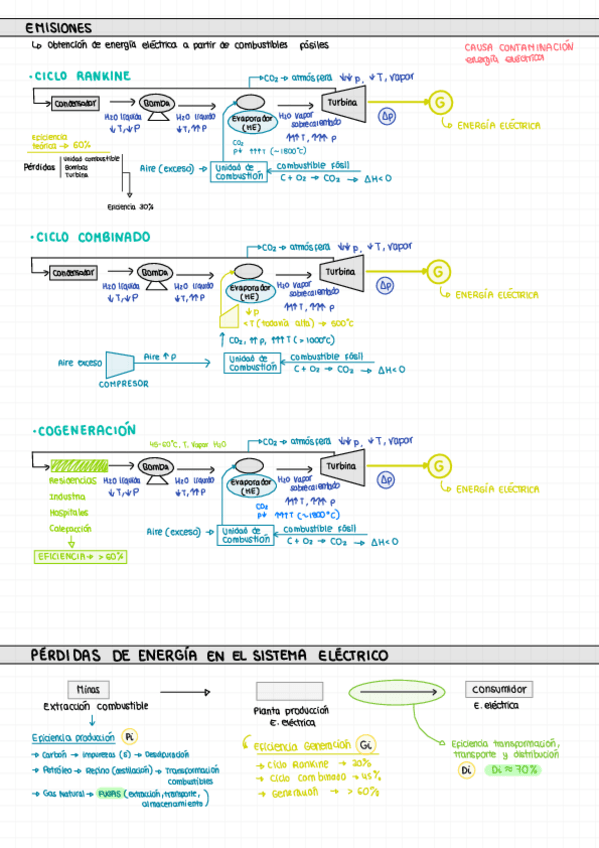 EMISIONES
↳ Obtención de energía eléctrica a partir de combustibles fósiles
CAUSA CONTAMINACIÓN
energía eléctrica
· CICLO RANKINE
CO2 → atmósfera ↓↓p, ↓T, vapor
Condensador
Bomba
Turbina
G
H2O líquida
↓T,↓P
H2O líquido
↓T,↑P
Evaporador
(HE)
H2O vapor
sobrecalentado
↑↑T, ↑↑P
Δp
ENERGÍA ELÉCTRICA
Eficiencia
teórica → 60%
CO2
P↓ ↑↑↑T (~1800°C)
Pérdidas
Unidad combustible
Bombas
Turbina
Aire (exceso) →
Unidad de
Combustión
Combustible Fósil
C + O2 → CO2 → ΔH<0
Eficiencia 30%
· CICLO COMBINADO
CO2 → atmósfera ↓↓p, ↓T, vapor
Condensador
Bomba
Turbina
G
H2O líquida
↓T,↓P
H2O líquido
↓T,↑P
Evaporador
(HE)
H2O vapor
sobrecalentado
↑↑T, ↑↑P
Δp
ENERGÍA ELÉCTRICA
↓P
<T (todavía alta) → 500°C
CO2, ↑P, ↑↑↑T (>1000°C)
Aire exceso
Aire ↑P
Unidad de
Combustión
combustible fósil
C + O2 → CO2 → ΔH<0
COMPRESOR
· COGENERACIÓN
45-60°C, T, vapor H2O
CO2 → atmósfera ↓↓p, ↓T, vapor
Bomba
Turbina
G
Residencias
Industria
Hospitales
Calefacción
H2O líquida
↓T,↓P
H2O líquido
↓T,↑P
Evaporador
(HE)
H2O vapor
sobrecalentado
↑↑T, ↑↑P
Δp
ENERGÍA ELÉCTRICA
CO2
P↓ ↑↑↑T (~1800°C)
Aire (exceso) →
Unidad de
Combustión
combustible Fósil
C + O2 → CO2 → ΔH<0
EFICIENCIA → >60%
PÉRDIDAS DE ENERGÍA EN EL SISTEMA ELÉCTRICO
Minas
Extracción combustible
Planta producción
E. eléctrica
consumidor
E. eléctrica
Eficiencia producción Pi
→ Carbón → impurezas (S) → Desulpuración
→ Petróleo → Refino (destilación) → Transformación
combustibles
→ Gas Natural → FUGAS (extracción, transporte,
almacenamiento)
Eficiencia Generación Gi
→ Ciclo Rankine → 30%
→ Ciclo combinado → 45%
→ Generación → >60%
Eficiencia transformación,
transporte y distribución
Di Di ≈ 70%